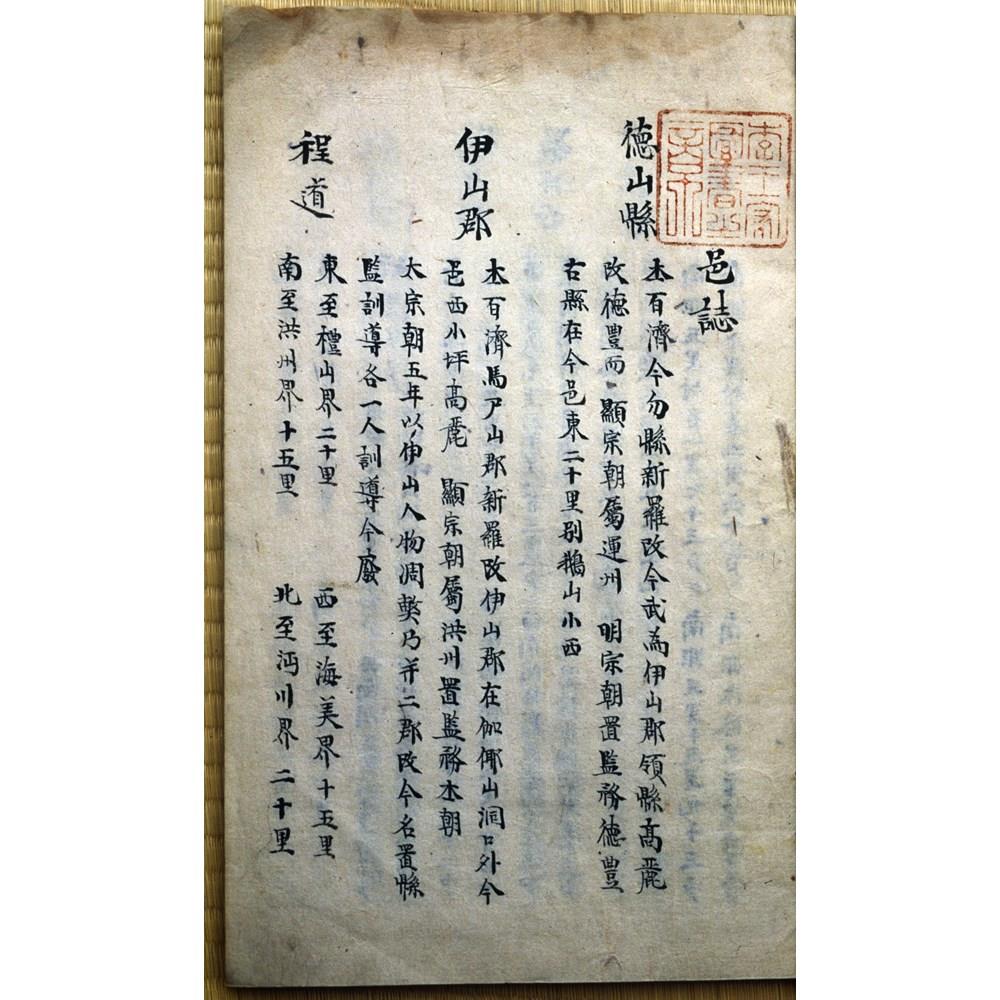 李王家
圖書之
章
邑誌
德山縣
本百濟今勿縣新羅改今武為伊山郡領縣高麗
改德豊而顯宗朝屬運州 明宗朝置監務德豊
古縣在今邑東二十里別鵝山小西
伊山郡
本百濟馬尸山郡新羅改伊山郡在伽倻山洞口外今
邑西小坪高麗 顯宗朝屬洪州置監務本朝
太宗朝五年以伊山人物凋弊乃并二郡改今名置縣
監訓導各一人訓導今廢
程道
東至禮山界二十里 西至海美界十五里
南至洪州界十五里 北至沔川界二十里